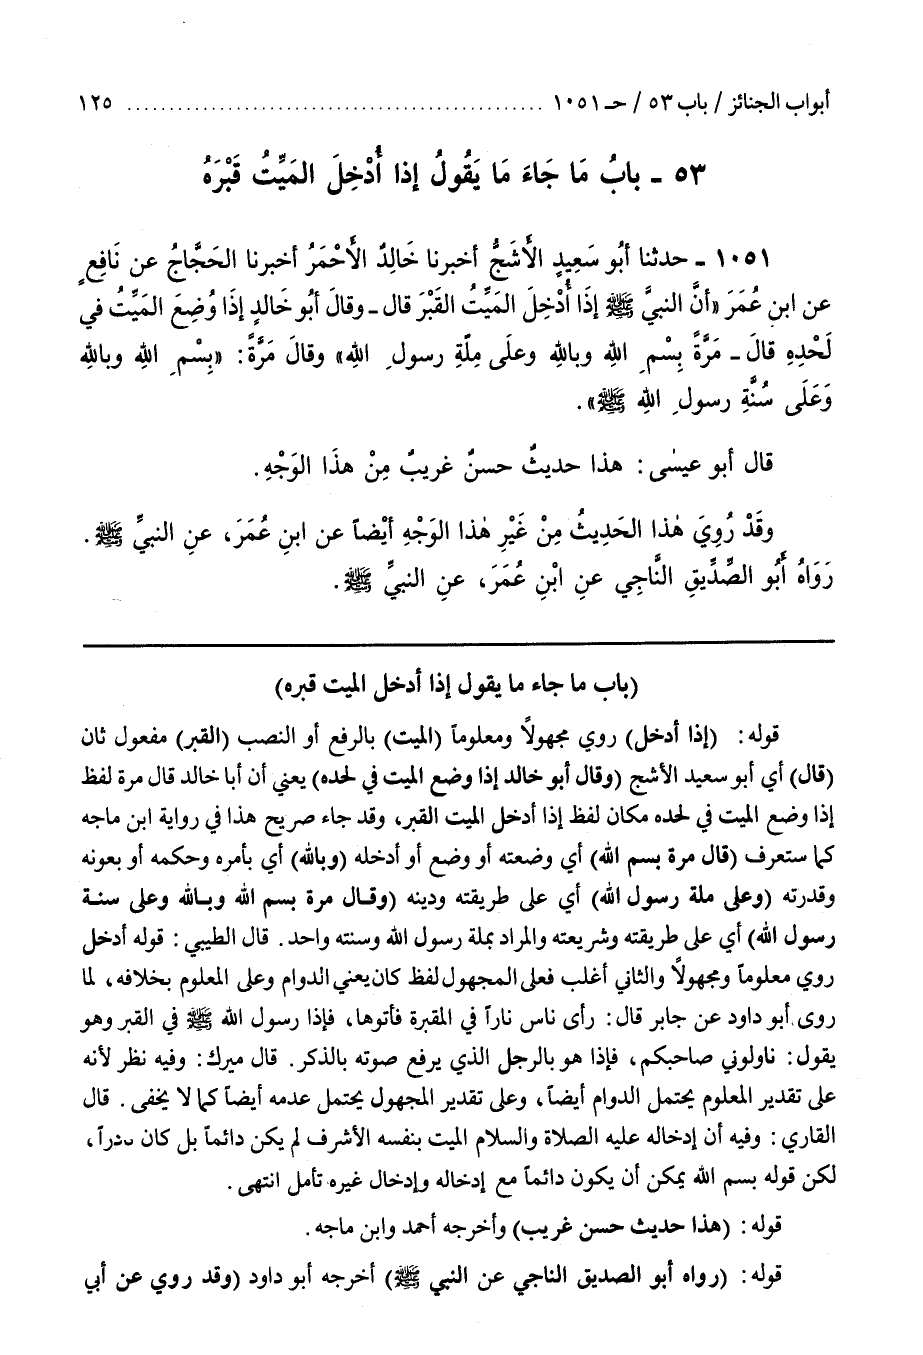 أبواب الجنائز / باب ٥٣ / حـ ١٠٥١ ................................................ ١٢٥
٥٣ ـ بابُ مَا جَاءَ مَا يَقُولُ إذا أُدْخِلَ المَيِّتُ قَبْرَهُ
١٠٥١ ـ حدثنا أبُو سَعِيدٍ الأَشَجُّ أخبرنا خَالِدٌ الأَحْمَرُ أخبرنا الحَجَّاجُ عن نَافِعٍ
عن ابنِ عُمَرَ «أنَّ النبيَّ ﷺ إذَا أُدْخِلَ المَيِّتُ القَبْرَ قال ـ وقالَ أبُو خَالدٍ إذَا وُضِعَ المَيِّتُ في
لَحْدِهِ قالَ ـ مَرَّةً بِسْمِ اللهِ وباللهِ وعلَى مِلّةِ رسولِ اللهِ» وقالَ مَرَّةً: «بِسْمِ اللهِ وباللهِ
وَعَلَى سُنَّةِ رسولِ اللهِ ﷺ».
قال أبو عيسٰى: هذا حديثٌ حسنٌ غريبٌ مِنْ هذَا الوَجْهِ.
وقَدْ رُوِيَ هٰذا الحَدِيثُ مِنْ غَيْرِ هٰذا الوَجْهِ أيْضاً عن ابنِ عُمَرَ، عنِ النبيِّ ﷺ.
رَوَاهُ أَبُو الصِّدِّيقِ النَّاجِي عنِ ابْنِ عُمَرَ، عنِ النبيِّ ﷺ.
(باب ما جاء ما يقول إذا أدخل الميت قبره)
قوله: (إذا أدخل) روي مجهولاً ومعلوماً (الميت) بالرفع أو النصب (القبر) مفعول ثان
(قال) أي أبو سعيد الأشج (وقال أبو خالد إذا وضع الميت في لحده) يعني أن أبا خالد قال مرة لفظ
إذا وضع الميت في لحده مكان لفظ إذا أدخل الميت القبر، وقد جاء صريح هذا في رواية ابن ماجه
كما ستعرف (قال مرة بسم الله) أي وضعته أو وضع أو أدخله (وبالله) أي بأمره وحكمه أو بعونه
وقدرته (وعلى ملة رسول الله) أي على طريقته ودينه (وقال مرة بسم الله وبالله وعلى سنة
رسول الله) أي على طريقته وشريعته والمراد بملة رسول الله وسنته واحد. قال الطيبي: قوله أدخل
روي معلوماً ومجهولاً والثاني أغلب فعلى المجهول لفظ كان يعني الدوام وعلى المعلوم بخلافه، لما
روى أبو داود عن جابر قال: رأى ناس ناراً في المقبرة فأتوها، فإذا رسول الله ﷺ في القبر وهو
يقول: ناولوني صاحبكم، فإذا هو بالرجل الذي يرفع صوته بالذكر. قال ميرك: وفيه نظر لأنه
على تقدير المعلوم يحتمل الدوام أيضاً، وعلى تقدير المجهول يحتمل عدمه أيضاً كما لا يخفى. قال
القاري: وفيه أن إدخاله عليه الصلاة والسلام الميت بنفسه الأشرف لم يكن دائماً بل كان نادراً،
لكن قوله بسم الله يمكن أن يكون دائماً مع إدخاله وإدخال غيره تأمل انتهى.
قوله: (هذا حديث حسن غريب) وأخرجه أحمد وابن ماجه.
قوله: (رواه أبو الصديق الناجي عن النبي ﷺ) أخرجه أبو داود (وقد روي عن أبي